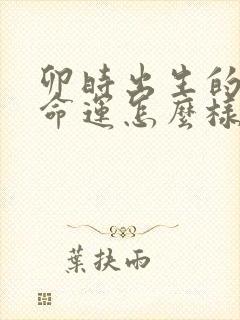 卯時出生的
命運怎麼樣
葉扶雨